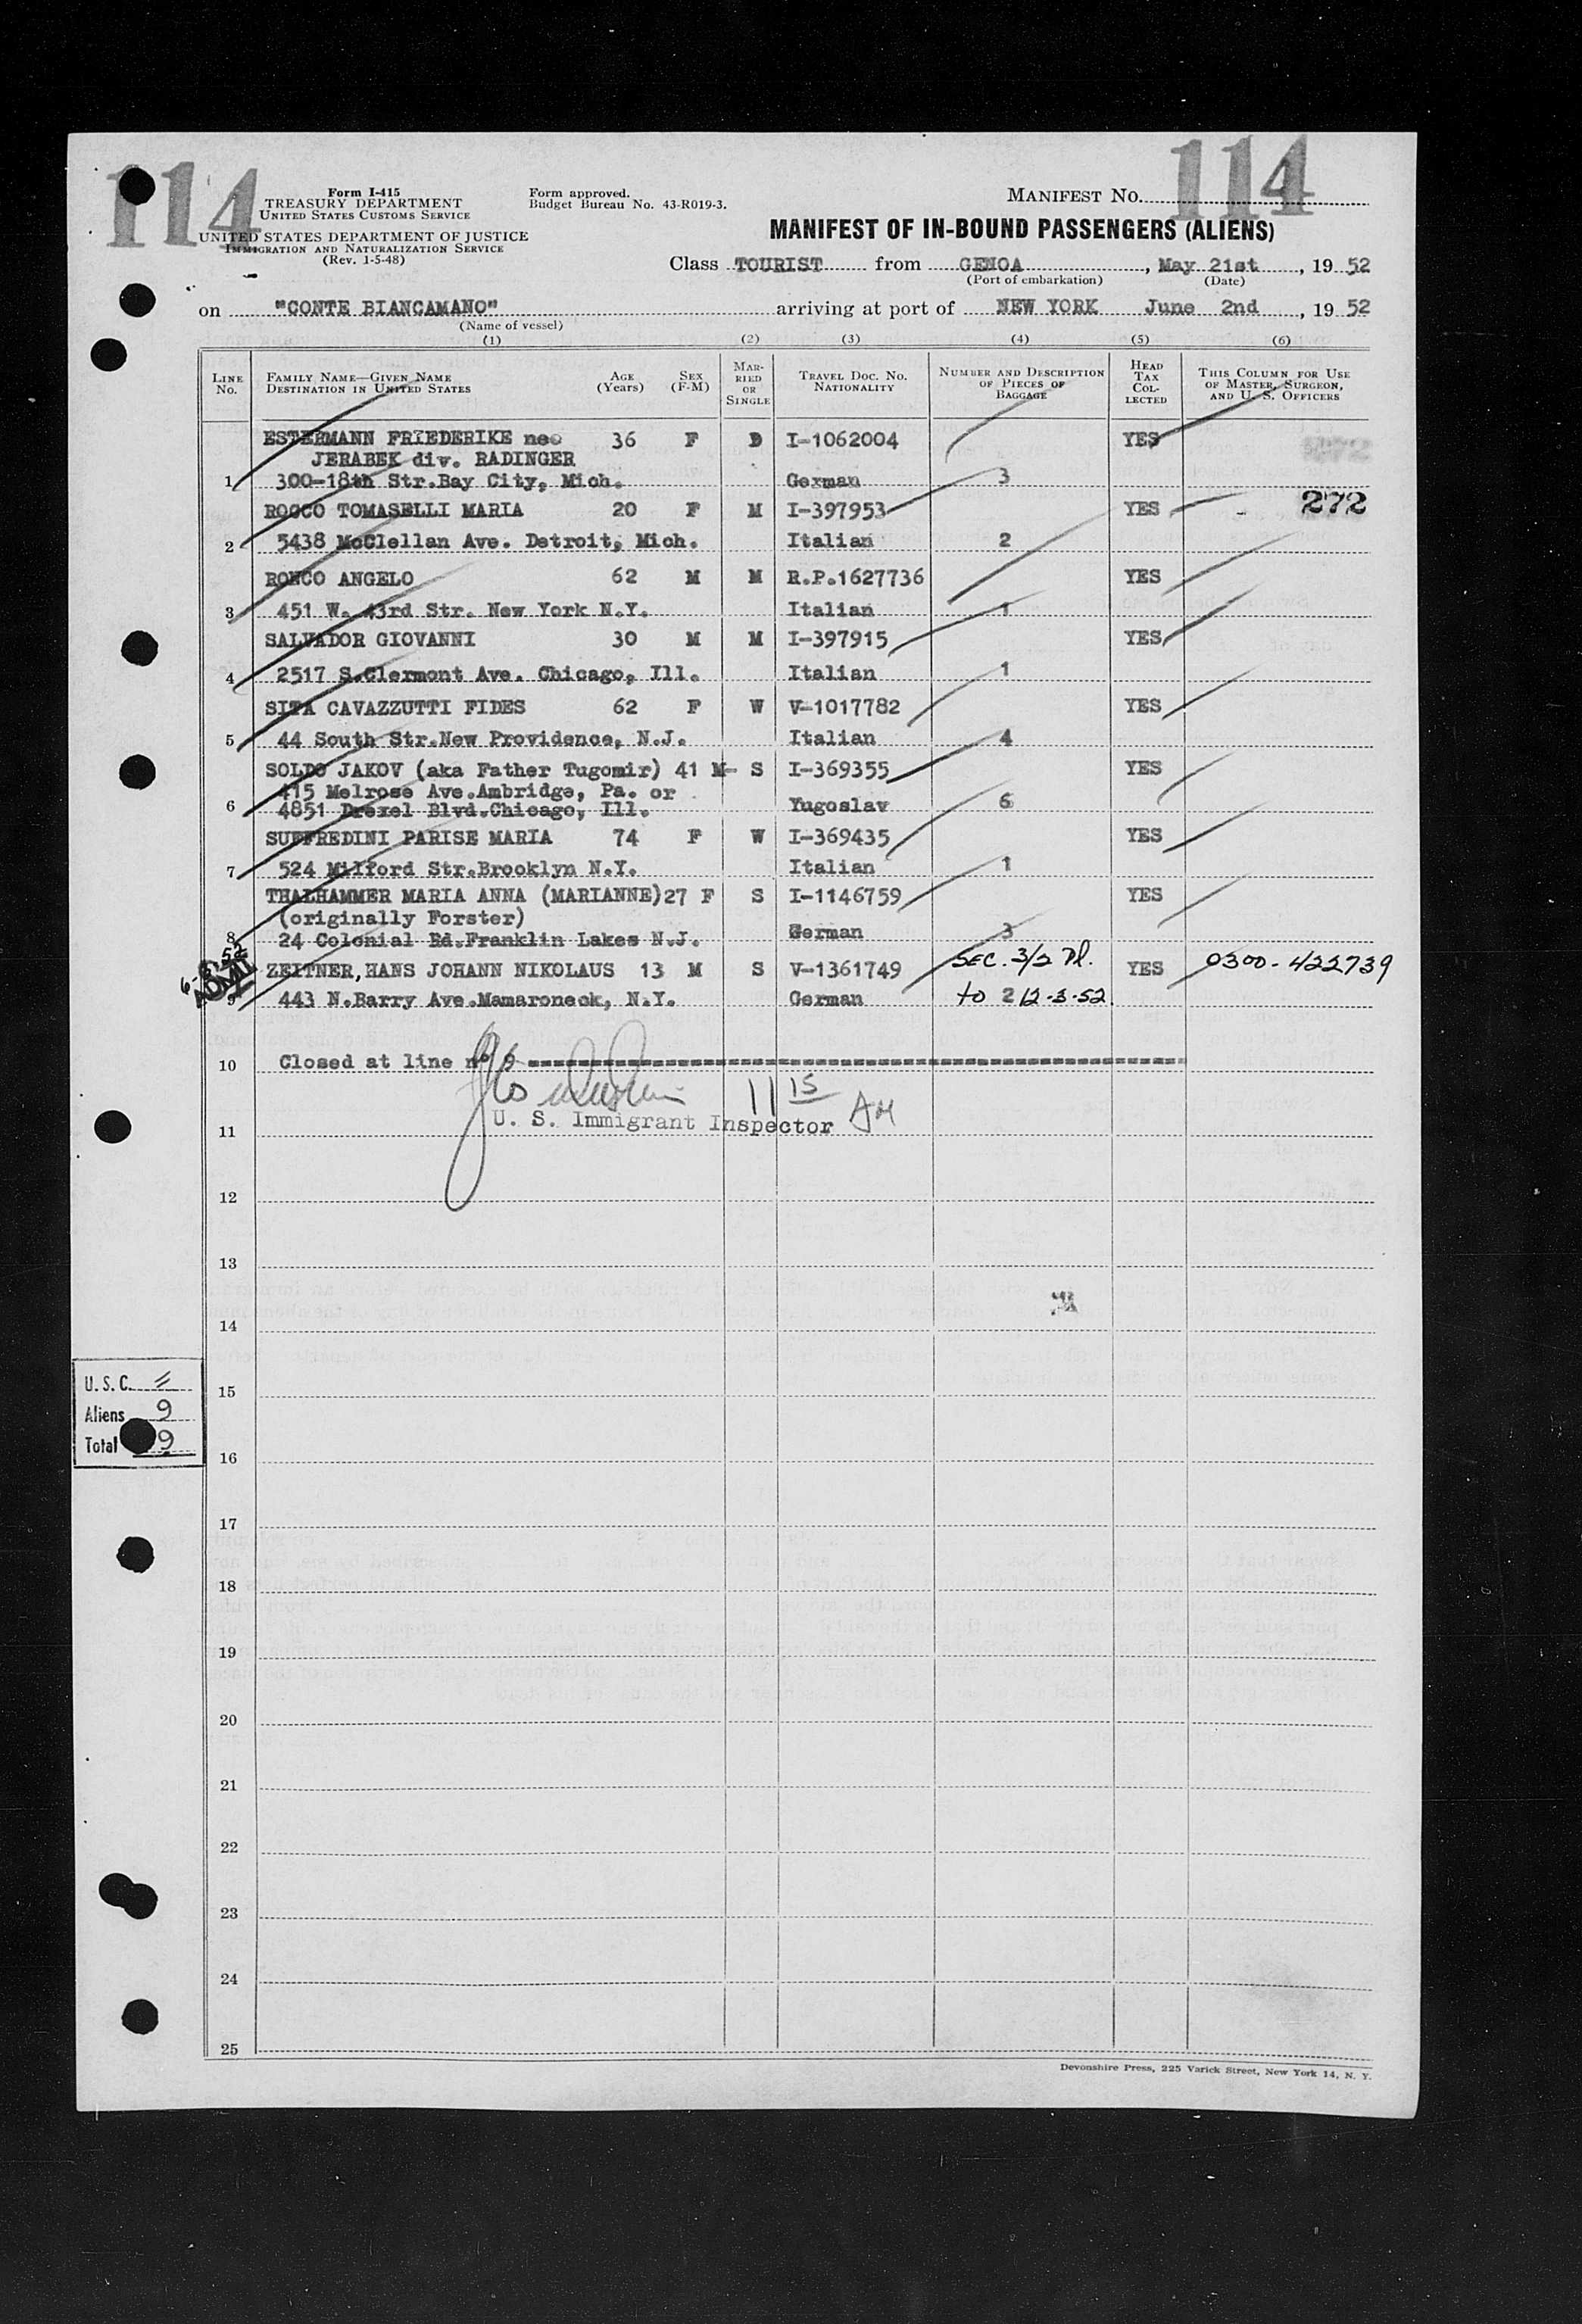 114
114
Form I-415
TREASURY DEPARTMENT
UNITED STATES CUSTOMS SERVICE
UNITED STATES DEPARTMENT OF JUSTICE
IMMIGRATION AND NATURALIZATION SERVICE
(Rev. 1-5-48)
Form approved.
Budget Bureau No. 43-R019-3.
MANIFEST NO.
MANIFEST OF IN-BOUND PASSENGERS (ALIENS)
Class TOURIST from GENOA, May 21st, 19 52
(Port of embarkation) (Date)
on "CONTE BIANCAMANO" arriving at port of NEW YORK June 2nd, 19 52
(Name of vessel)
(1) (2) (3) (4) (5) (6)
LINE No. FAMILY NAME—GIVEN NAME DESTINATION IN UNITED STATES AGE (Years) SEX (F-M) MARRIED OR SINGLE TRAVEL DOC. NO. NATIONALITY NUMBER AND DESCRIPTION OF PIECES OF BAGGAGE HEAD TAX COLLECTED THIS COLUMN FOR USE OF MASTER, SURGEON, AND U. S. OFFICERS
ESTERMANN FRIEDERIKE nee 36 F D I-1062004 YES
JERABEK div. RADINGER
1 300-18th Str.Bay City, Mich. German 3
ROCCO TOMASELLI MARIA 20 F M I-397953 YES 272
2 5438 McClellan Ave. Detroit, Mich. Italian 2
RONCO ANGELO 62 M M R.P.1627736 YES
3 451 W. 43rd Str. New York N.Y. Italian 1
SALVADOR GIOVANNI 30 M M I-397915 YES
4 2517 S.Clermont Ave. Chicago, Ill. Italian 1
SITA CAVAZZUTTI FIDES 62 F W V-1017782 YES
5 44 South Str.New Providence, N.J. Italian 4
SOLDO JAKOV (aka Father Tugomir) 41 M- S I-369355 YES
415 Melrose Ave.Ambridge, Pa. or
6 4851 Drexel Blvd.Chicago, Ill. Yugoslav 6
SUFFREDINI PARISE MARIA 74 F W I-369435 YES
7 524 Milford Str.Brooklyn N.Y. Italian 1
THALHAMMER MARIA ANNA (MARIANNE) 27 F S I-1146759 YES
(originally Forster)
8 24 Colonial Rd.Franklin Lakes N.J. German 3
ZEITNER, HANS JOHANN NIKOLAUS 13 M S V-1361749 SEC. 3/2 Pl. YES 0300-422739
9 443 N.Barry Ave.Mamaroneck, N.Y. German to 2 12-3-52
10 Closed at line nº 9
11 15 AM
U. S. Immigrant Inspector
11
12
13
14
U. S. C.
15
Aliens 9
Total 9
16
17
18
19
20
21
22
23
24
25
Devonshire Press, 225 Varick Street, New York 14, N. Y.